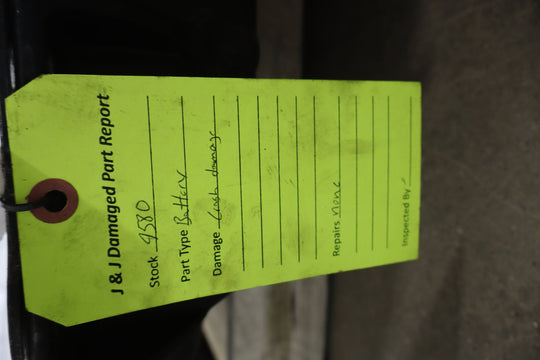 J & J Damaged Part Report
Stock 4580
Part Type Battery
Damage Crash damage
Repairs none
Inspected By